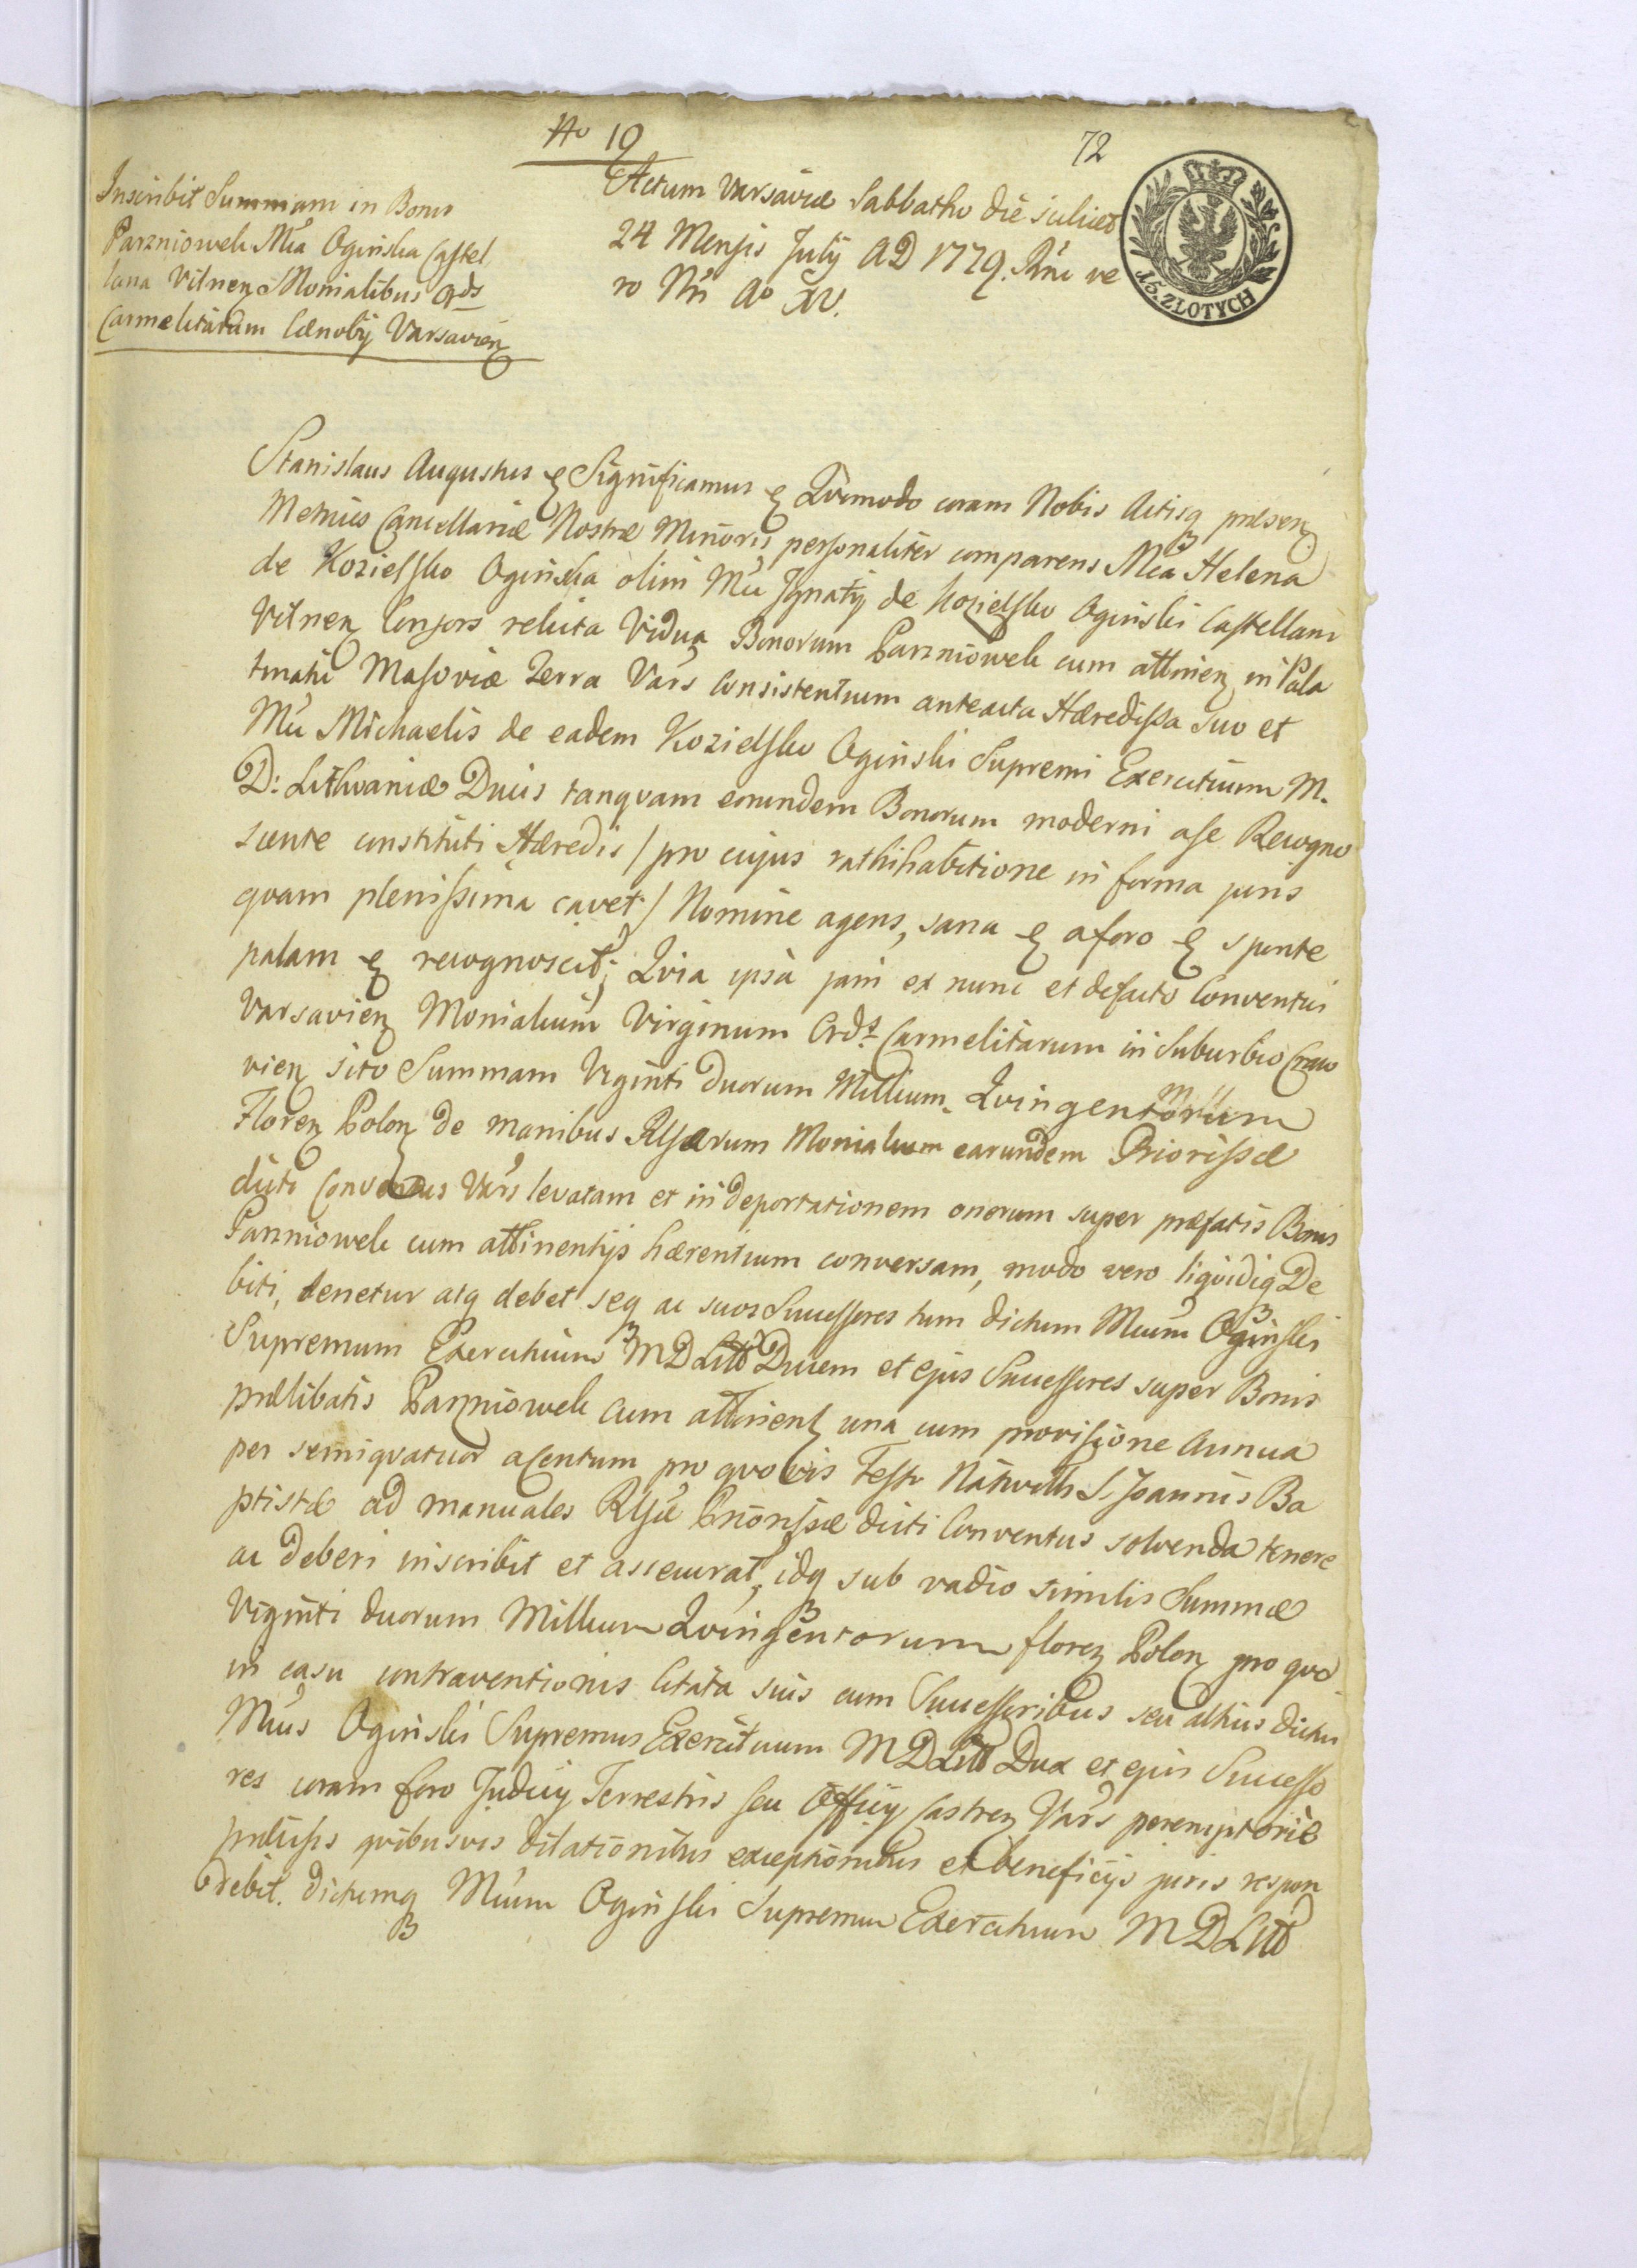 No 10
72
Inscribit Summam in Bonis
Parzniowek Mca Oginska Castel
lana Vilnen Monialibus Ords
Carmelitarum Cænobij Varsavien
Actum Varsaviæ Sabbatho die scilicet
24 Mensis Julij AD 1779. Rni ve
ro Nri Ao XV.
15. ZŁOTYCH
Stanislaus Augustus Significamus Qvomodo coram Nobis Actisq præsen
Metrices Cancellariæ Nostræ Minoris personaliter comparens Mca Helena
de Kozielsko Oginska olim Mci Ignatij de Kozielsko Oginski Castellani
Vilnen Consors relicta Vidua Bonorum Parzniowek cum attinen in Pala
tinatu Masoviæ Terra Vars consistentium anteacta Hæredissa suo et
Mci Michaelis de eadem Kozielsko Oginski Supremi Exercituum M.
D: Lithvaniæ Ducis tanqvam eorundem Bonorum moderni a se Recogno
scente constituti Hæredis / pro cujus rathihabitione in forma juris
qvam plenissima cavet / Nomine agens, sana a foro sponte
palam recognoscit; Qvia ipsa jam ex nunc et defacto Conventui
Varsavien Monialium Virginum Ords Carmelitarum in Suburbio Craco
vien sito Summam Viginti duorum Millium Qvingentorum
Floren Polon de manibus Rlgsarum Monialium earundem Priorissæ
dicti Conventus Vars levatam et in deportationem onerum super præfatis Bonis
Parzniowek cum attinentijs hærentium conversam, modo vero liqvidiq De
biti, tenetur atq debet seq ac suos Successores tum dictum Mcum Oginski
Supremum Exercituum MDLitt Ducem et ejus Successores super Bonis
prælibatis Parzniowek cum attinent una cum provisione annua
per semiqvatuor a centum pro qvovis Festo Natvitts S. Joannis Ba
ptistæ ad manuales Rlgsæ Priorissæ dicti Conventus solvenda tenere
ac deberi inscribit et assecurat, idq sub vadio similis Summæ
Viginti duorum Millium Qvingentorum floren Polon pro qvo
in casu contraventionis citata suis cum Successoribus seu altius dictus
Mcus Oginski Supremus Exercituum MDLitt Dux et ejus Successo
res coram foro Judicij Terrestris seu Officij Castren Vars peremptorie
præcisis qvibusvis dilationibus exceptionibus et beneficijs juris respon
debit. dictumq Mcum Oginski Supremum Exercituum MDLitt